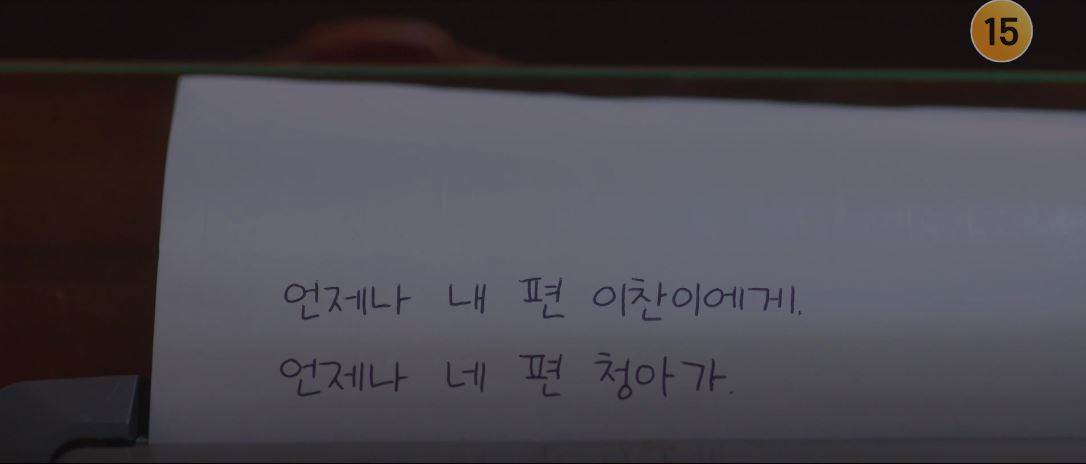 15
언제나 내 편 이찬이에게.
언제나 네 편 청아가.